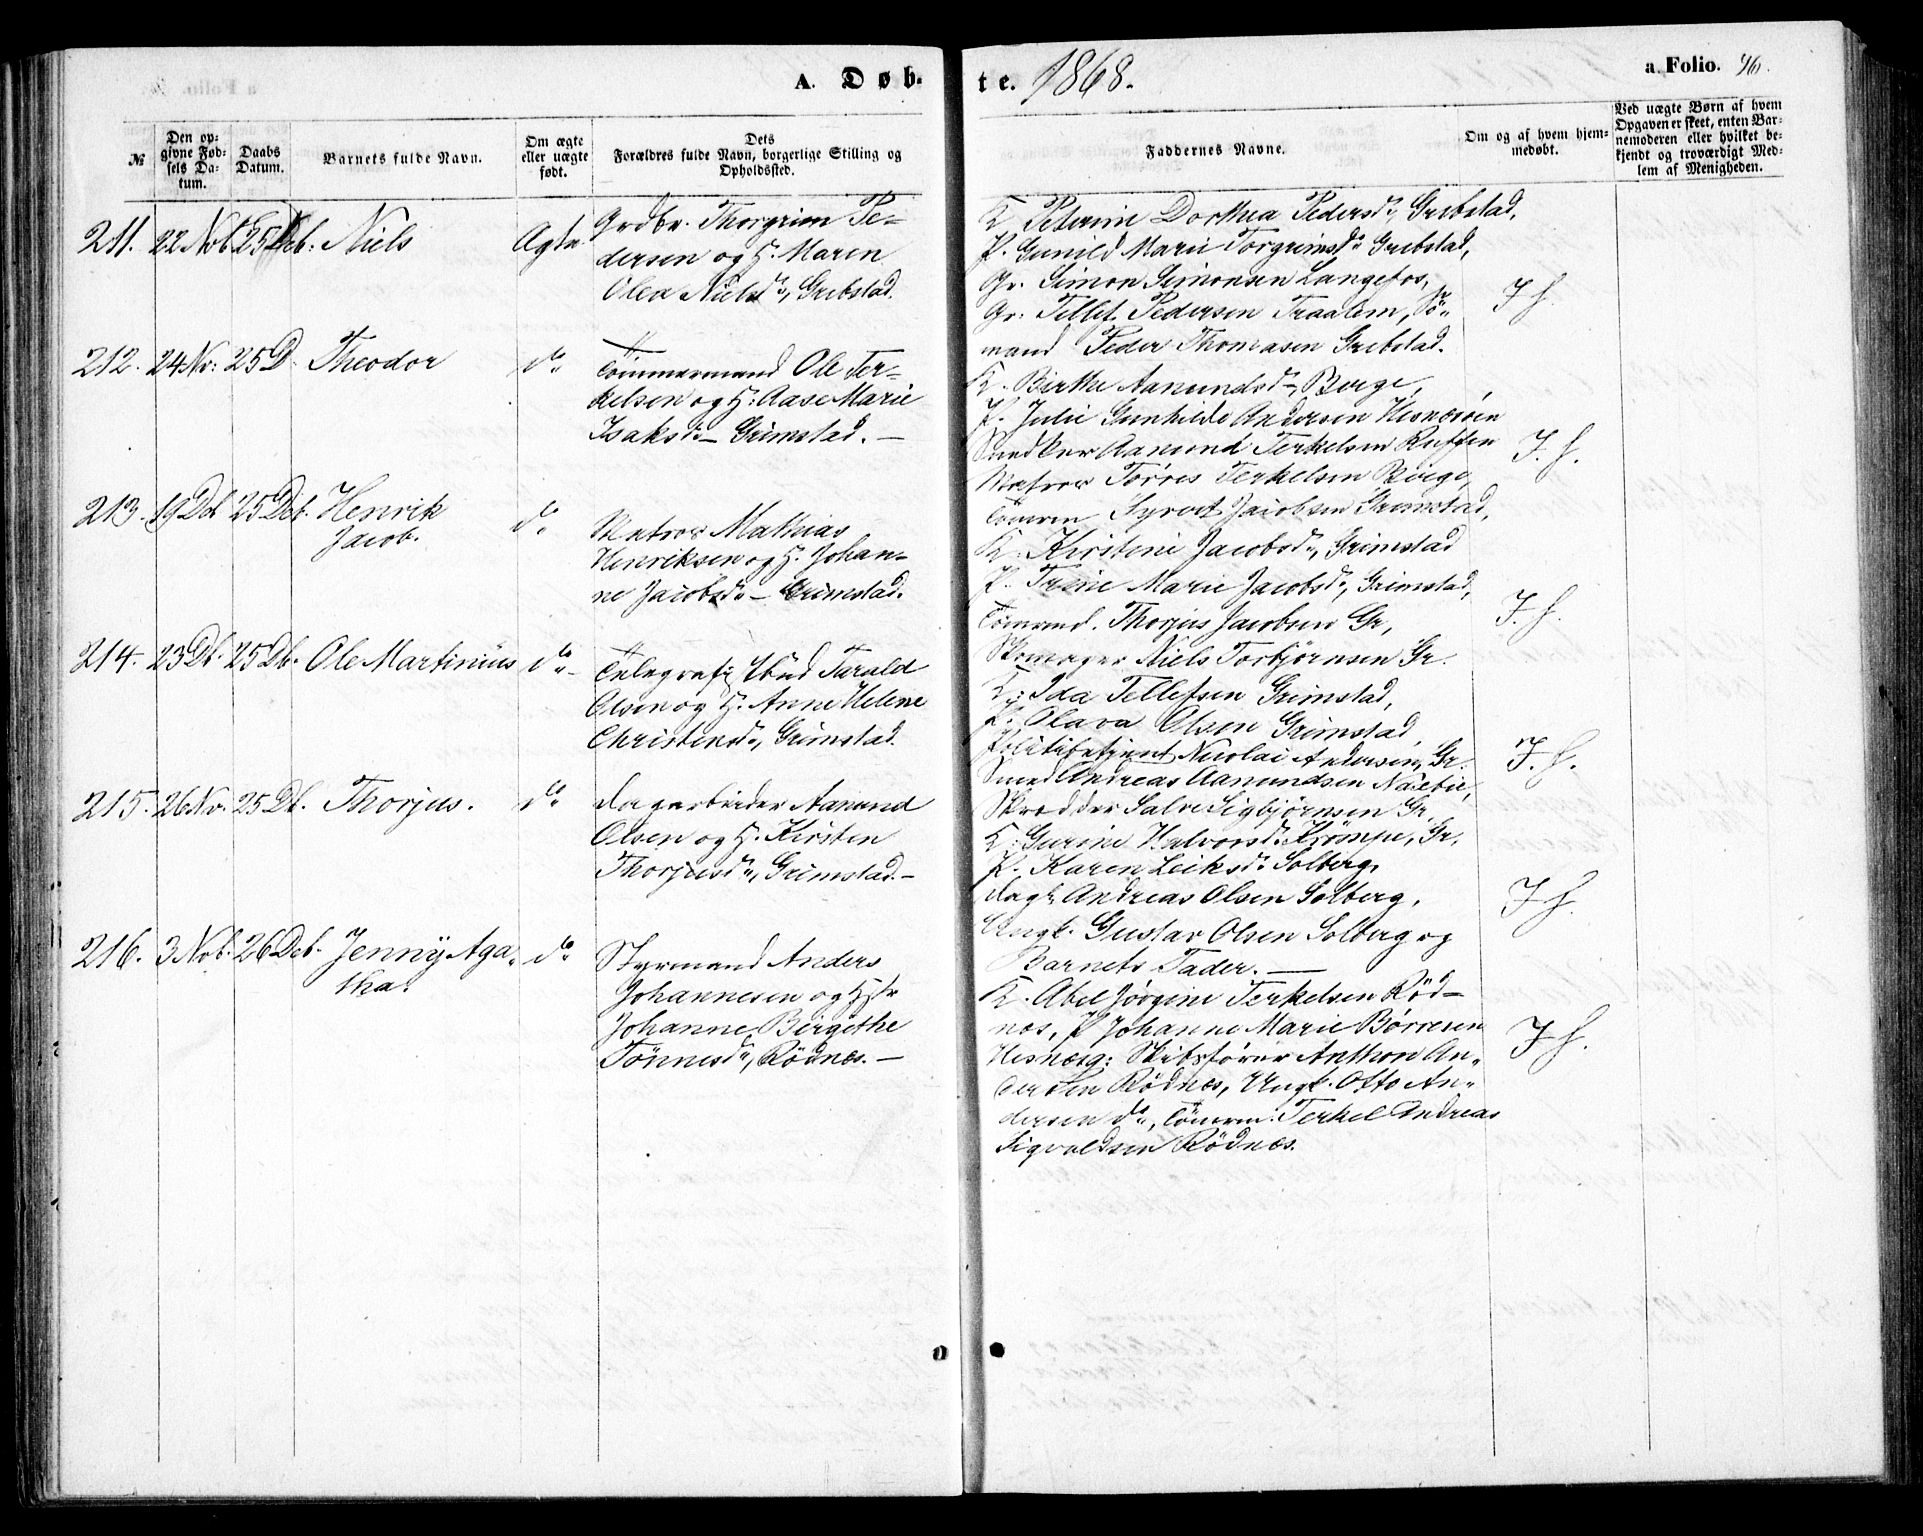 A. Døb-
te. 1868.
a. Folio. 76.
№
Den op-
givne Fød-
sels Da-
tum.
Daabs
Datum.
Barnets fulde Navn.
Om ægte
eller uægte
født.
Dets
Forældres fulde Navn, borgerlige Stilling og
Opholdssted.
Faddernes Navne.
Om og af hvem hjem-
medøbt.
Ved uægte Børn af hvem
Opgaven er skeet, enten Bar-
nemoderen eller hvilket be-
kjendt og troværdigt Med-
lem af Menigheden.
211. 22 Nob. 25 Deb. Niels Ægte
Grdbr. Thorgrim Pe-
dersen og H. Maren
Olea Nielsdr, Gribstad.
K. Peterine Dorthea Pedersdr, Gribstad,
P. Gunild Marie Torgrimsdr Gribstad,
Gr. Simon Simonsen Langefos,
Gr. Tellef Pedersen Traalem, Sö-
mand Peder Thomasen Gribstad.
J f.
212. 24 Nv. 25 D. Theodor do
Tömmermand Ole Ter-
kelsen og H. Aase Marie
Isaksdr Grimstad. —
K. Birthe Aanundsdr, Berge,
P. Julie Gunhilde Andersen Hesnesöen
Snedker Aanund Terkelsen
Matros Törres Terkelsen Berge,
Tömrm Jacobsen Grimstad,
J. f.
213. 19 Dcb 25 Deb. Henrik
Jacob.
do
Matros Mathias
Henriksen og H. Johan-
ne Jacobsdr — Grimstad.
K. Kirstine Jacobsdr, Grimstad
P. Trine Marie Jacobsdr, Grimstad,
Tömmd. Thorjus Jacobsen Gr,
Skomager Niels Torbjörnsen Gr.
J. f.
214. 23 Db. 25 Db. Ole Martinius do
Telegrafist bud Tarald
Olsen og H. Anne Helene
Christensdr, Grimstad.
K. Ida Tellefsen Grimstad,
P. Olava Olsen Grimstad,
Politibetjent Nicolai Andersen, Gr.
Smed Andreas Aanundsen
Skrædder Salve Sigbjörnsen Gr.
J. f.
215. 26 Nv. 25 Db. Thorjus. do
Dagarbeider Aanund
Olsen og H. Kirsten
Thorjusdr, Grimstad. —
K. Gurine Halvorsdr Krömpe, Gr,
P. Karen Leiksdr Solberg,
Dagl. Andreas Olsen Solberg,
Ungk. Gustav Olsen Solberg og
Barnets Fader. —
J f.
216. 3 Nob. 26 Deb. Jenny Aga-
tha.
do
Styrmand Anders
Johannesen og Hstr
Johanne Birgithe
Tönnesdr, Rödnes. —
K. Abel Jörgine Terkelsen Röd-
nes, P Johanne Marie Börresen
Hesnesø: Skibsförer Anthon An-
dersen Rödnes, Ungk. Otto An-
dersen do, Tömrm: Terkel Andreas
Sigvaldsen Rödnes.
J f.